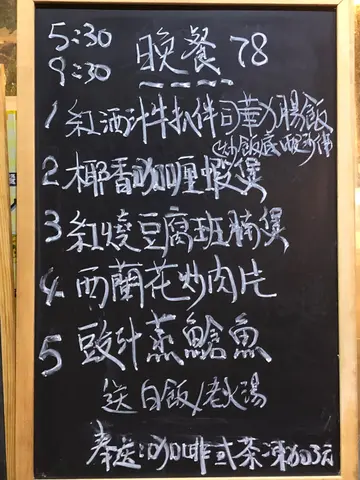 5:30
9:30
晚餐 78
1 紅酒汁牛扒伴司華力腸飯
(炒飯底 西沙律)
2 椰香咖喱蝦煲
3 紅燒豆腐班腩煲
4 西蘭花炒肉片
5 豉汁蒸鯰魚
送白飯/老火湯
奉送:咖啡或茶 凍加3元